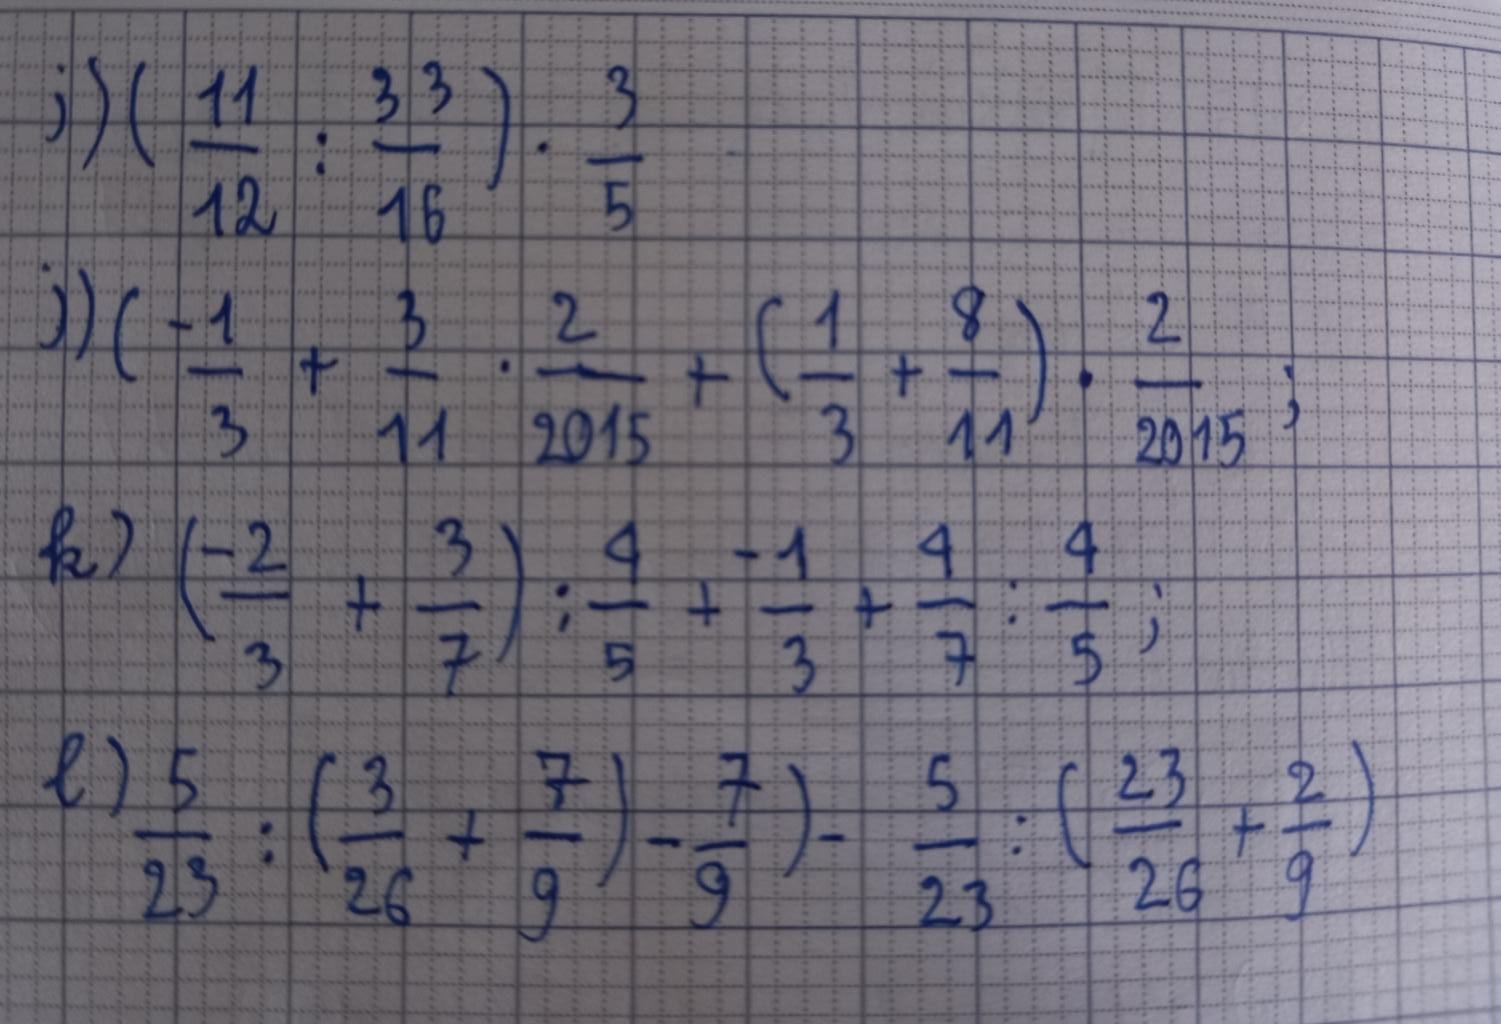 j) ( 11/12 : 33/16 ) · 3/5
j) ( -1/3 + 3/11 · 2/2015 + ( 1/3 + 8/11 ) · 2/2015 ;
k) ( -2/3 + 3/7 ) : 4/5 + -1/3 + 4/7 : 4/5 ;
l) 5/23 : ( 3/26 + 7/9 ) - 7/9 ) - 5/23 : ( 23/26 + 2/9 )